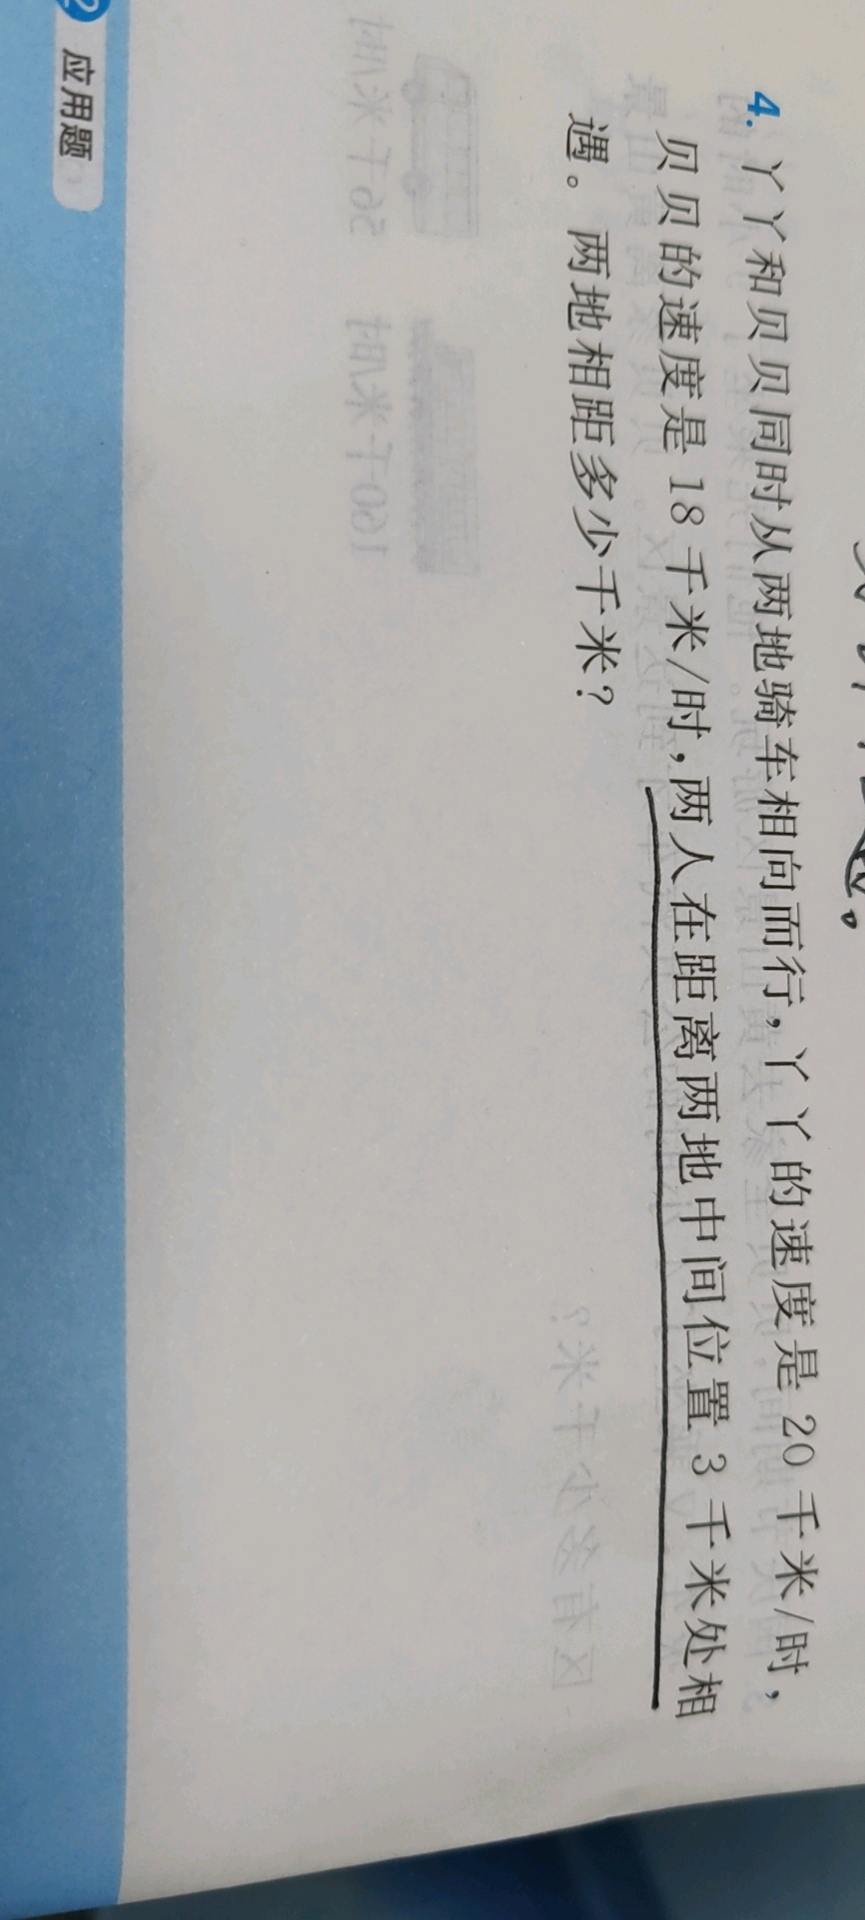 4. 丫丫和贝贝同时从两地骑车相向而行,丫丫的速度是 20 千米/时,
贝贝的速度是 18 千米/时,两人在距离两地中间位置 3 千米处相
遇。两地相距多少千米?
应用题